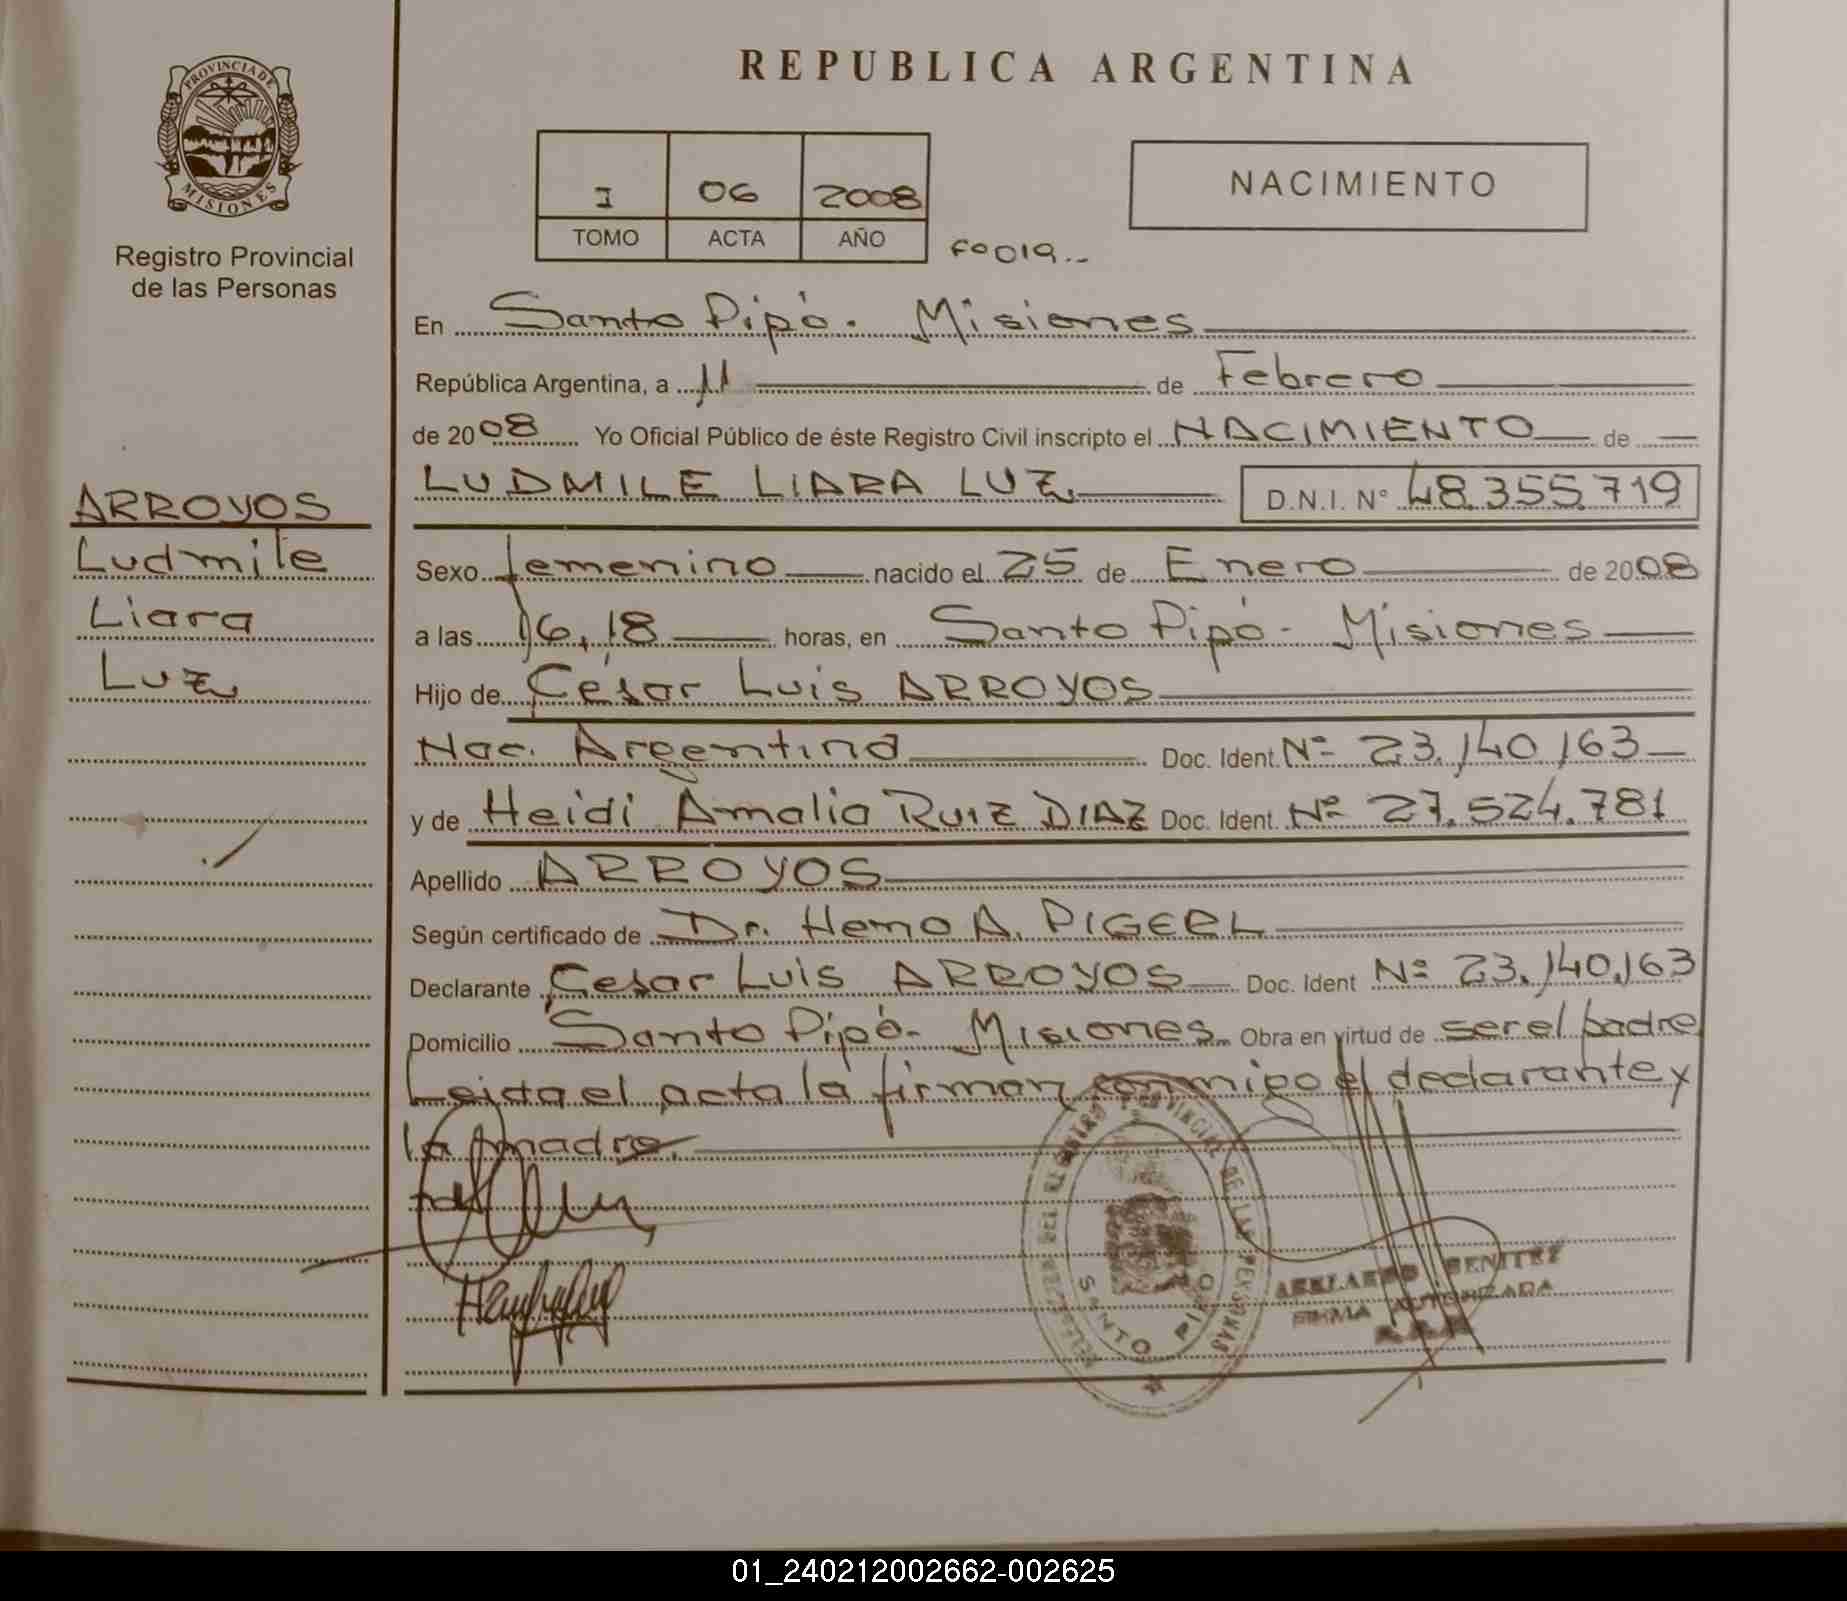 REPUBLICA ARGENTINA
PROVINCIA DE MISIONES
Registro Provincial
de las Personas
I 06 2008
TOMO ACTA AÑO
Fº 019..
NACIMIENTO
En Santo Pipó. Misiones
República Argentina, a 11 de Febrero
de 2008 Yo Oficial Público de éste Registro Civil inscripto el NACIMIENTO de
LUDMILE LIARA LUZ D.N.I. N° 48.355.719
ARROYOS
Ludmile
Liara
Luz
Sexo femenino nacido el 25 de Enero de 2008
a las 16,18 horas, en Santo Pipó - Misiones
Hijo de César Luis ARROYOS
Nac. Argentina Doc. Ident. Nº 23.140.163
y de Heidi Amalia RUIZ DIAZ Doc. Ident. Nº 27.524.781
Apellido ARROYOS
Según certificado de Dr. Hemo A. PIGERL
Declarante Cesar Luis ARROYOS Doc. Ident Nº 23.140.163
Domicilio Santo Pipó - Misiones Obra en virtud de ser el padre
Leida el acta la firman conmigo el declarante y
la madre.
REGISTRO PROVINCIAL DE LAS PERSONAS
SANTO PIPO
BENITEZ
FIRMA AUTORIZADA
01_240212002662-002625